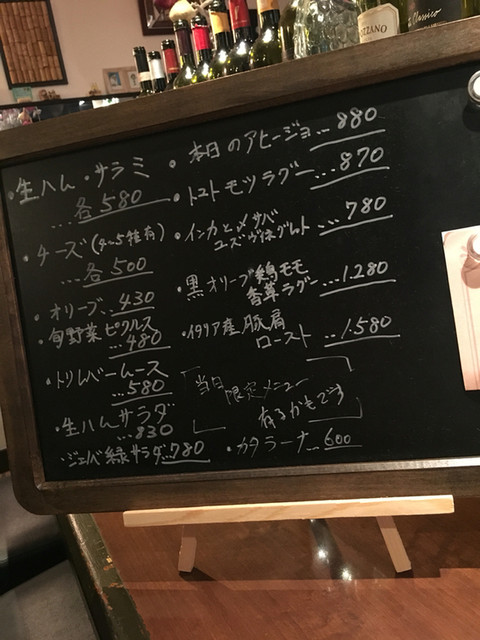 ・生ハム・サラミ
...各580
・チーズ(4~5種有)
...各500
・オリーブ...430
・旬野菜ピクルス
...480
・トリレバームース
...580
・生ハムサラダ
...830
・ジェノバ緑サラダ...780
・本日のアヒージョ...880
・トマトモツラグー...870
・インカとメサバ
ユズヴィネグレット
...780
・黒オリーブ鶏モモ
香草ラグー...1.280
・イタリア産豚肩
ロースト...1.580
「当日
限定メニュー
有るかもです」
・カタラーナ...600
Classico